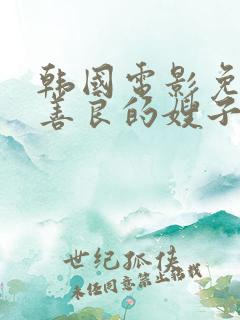 韩国电影免
善良的嫂子
世纪孤侠
未经同意禁止转载